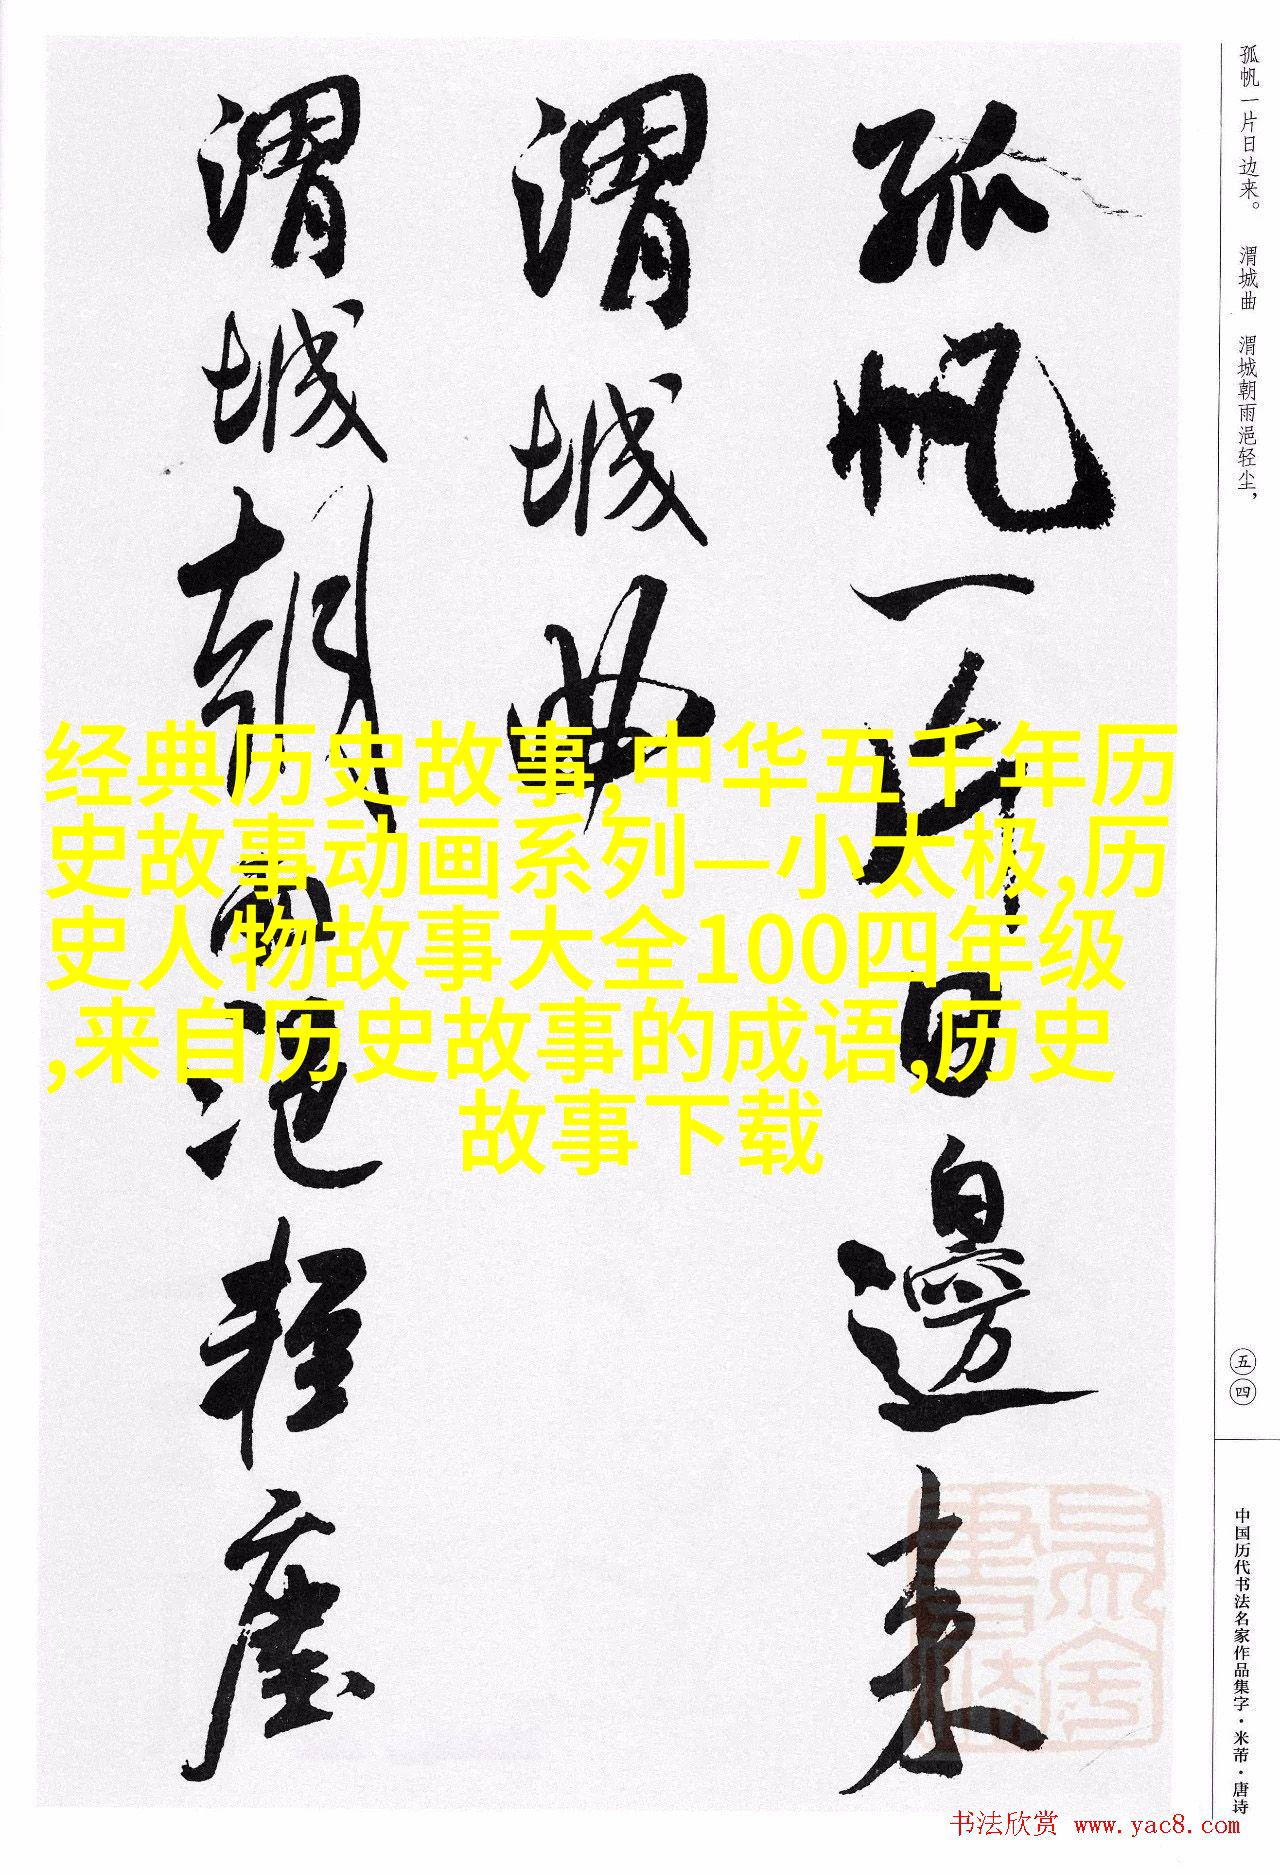 孤帆一片日边来。 渭城曲 渭城朝雨浥轻尘，
孤帆一片日邊来
渭城曲
渭城朝雨浥轻塵
经典历史故事,中华五千年历
史故事动画系列—小太极,历
史人物故事大全100四年级
,来自历史故事的成语,历史
故事下载
五四
中国历代书法名家作品集字·米芾·唐诗
书法欣赏 www.yac8.com